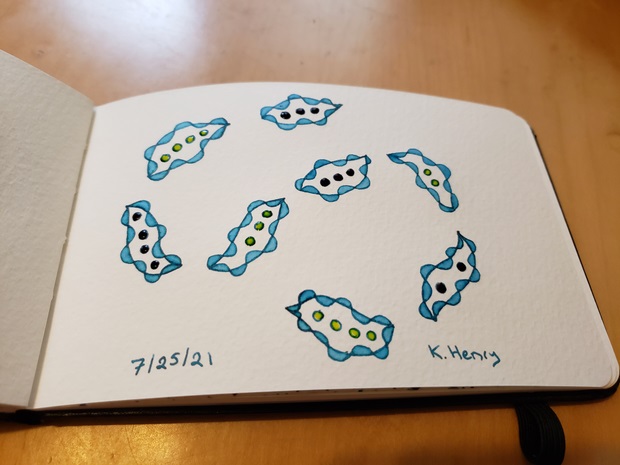 7/25/21
K. Henry